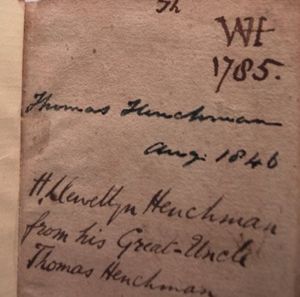 Th
WH
1785.
Thomas Henchman
Aug: 1846
H. Llewellyn Henchman
from his Great-Uncle
Thomas Henchman